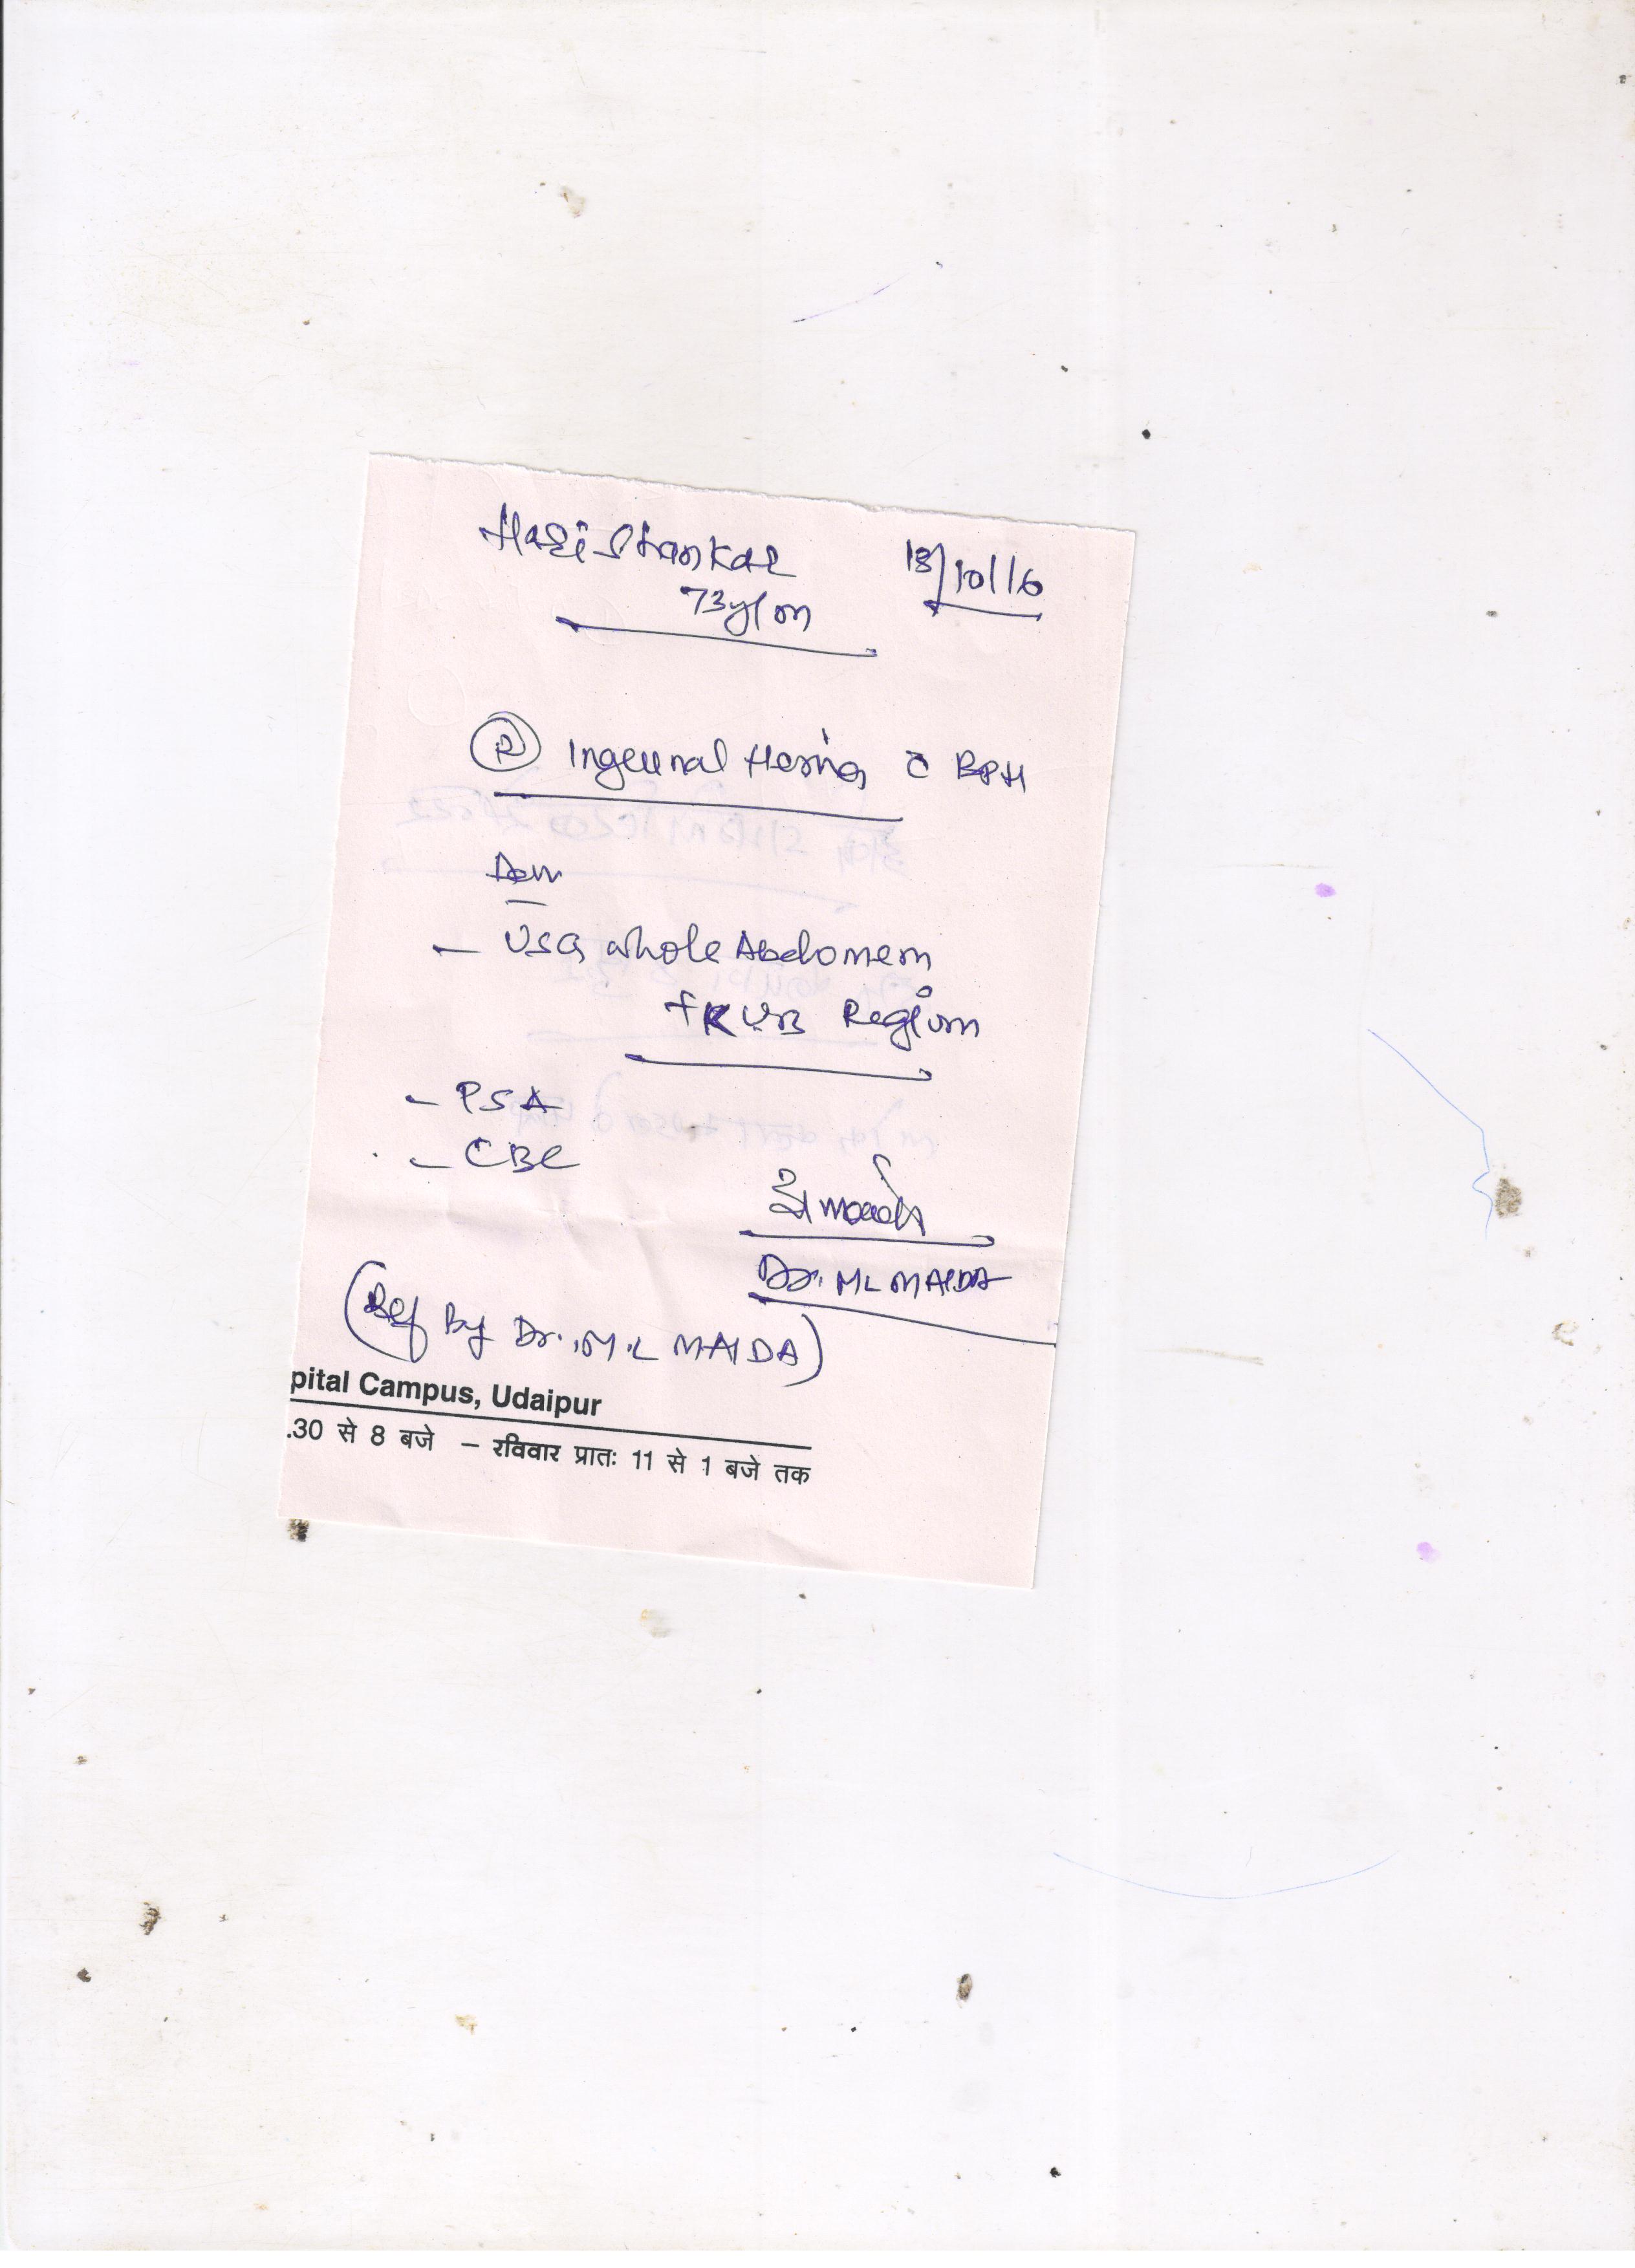 Hari Shankar 13/10/16
73y/m
Ⓡ Ingeunal Hernia c̄ BPH
Adv
- USG whole Abdomen
+ KUB Region
- PSA
- CBC
Dr. ML MAIDA
(Ref By Dr. M.L MAIDA)
pital Campus, Udaipur
.30 से 8 बजे – रविवार प्रातः 11 से 1 बजे तक